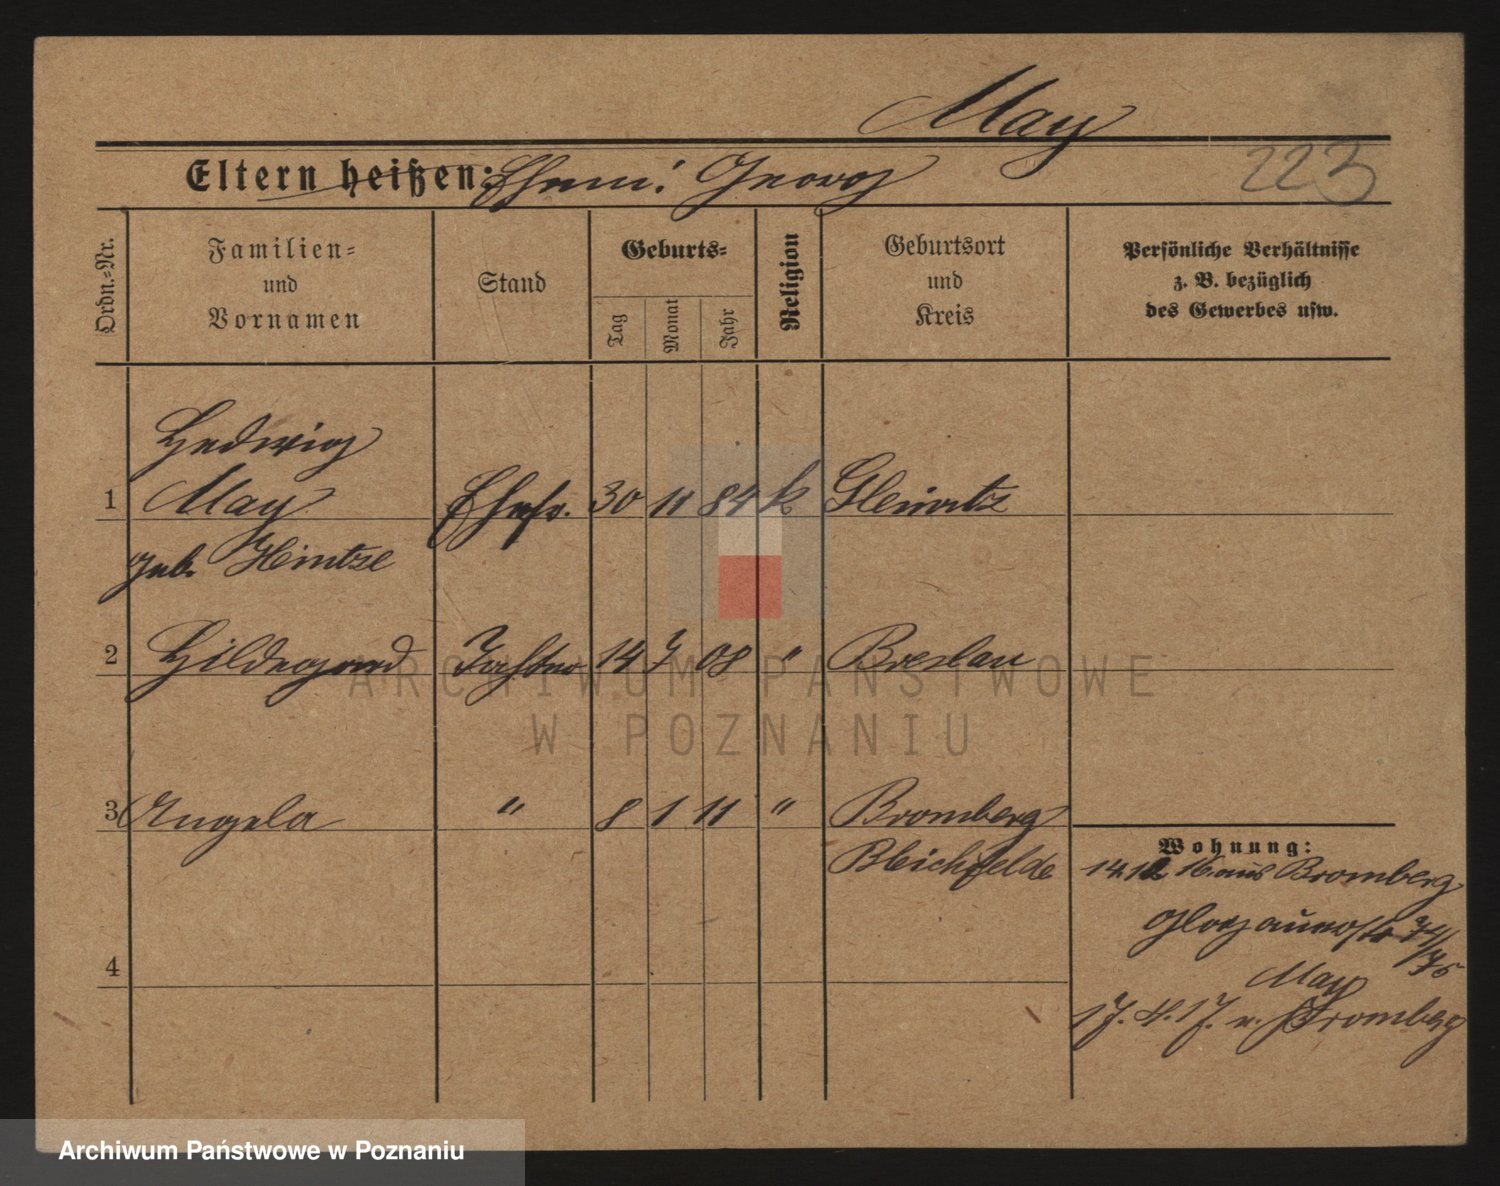 May
Eltern heißen: Ehem: Georg
223
Ordn.-Nr.
Familien-
und
Vornamen
Stand
Geburts-
Tag
Monat
Jahr
Religion
Geburtsort
und
Kreis
Persönliche Verhältnisse
z. B. bezüglich
des Gewerbes usw.
Hedwig
1 May Ehefr. 30 11 84 k Gleiwitz
geb. Hintze
2 Hildegard Tochter 14 7 08 " Breslau
3 Angela " 8 1 11 " Bromberg
Bleichfelde
4
Wohnung:
14.12 16. aus Bromberg
Glogauerstr 74/75
May
17. 4. 17. n. Bromberg
ARCHIWUM PAŃSTWOWE
W POZNANIU
Archiwum Państwowe w Poznaniu